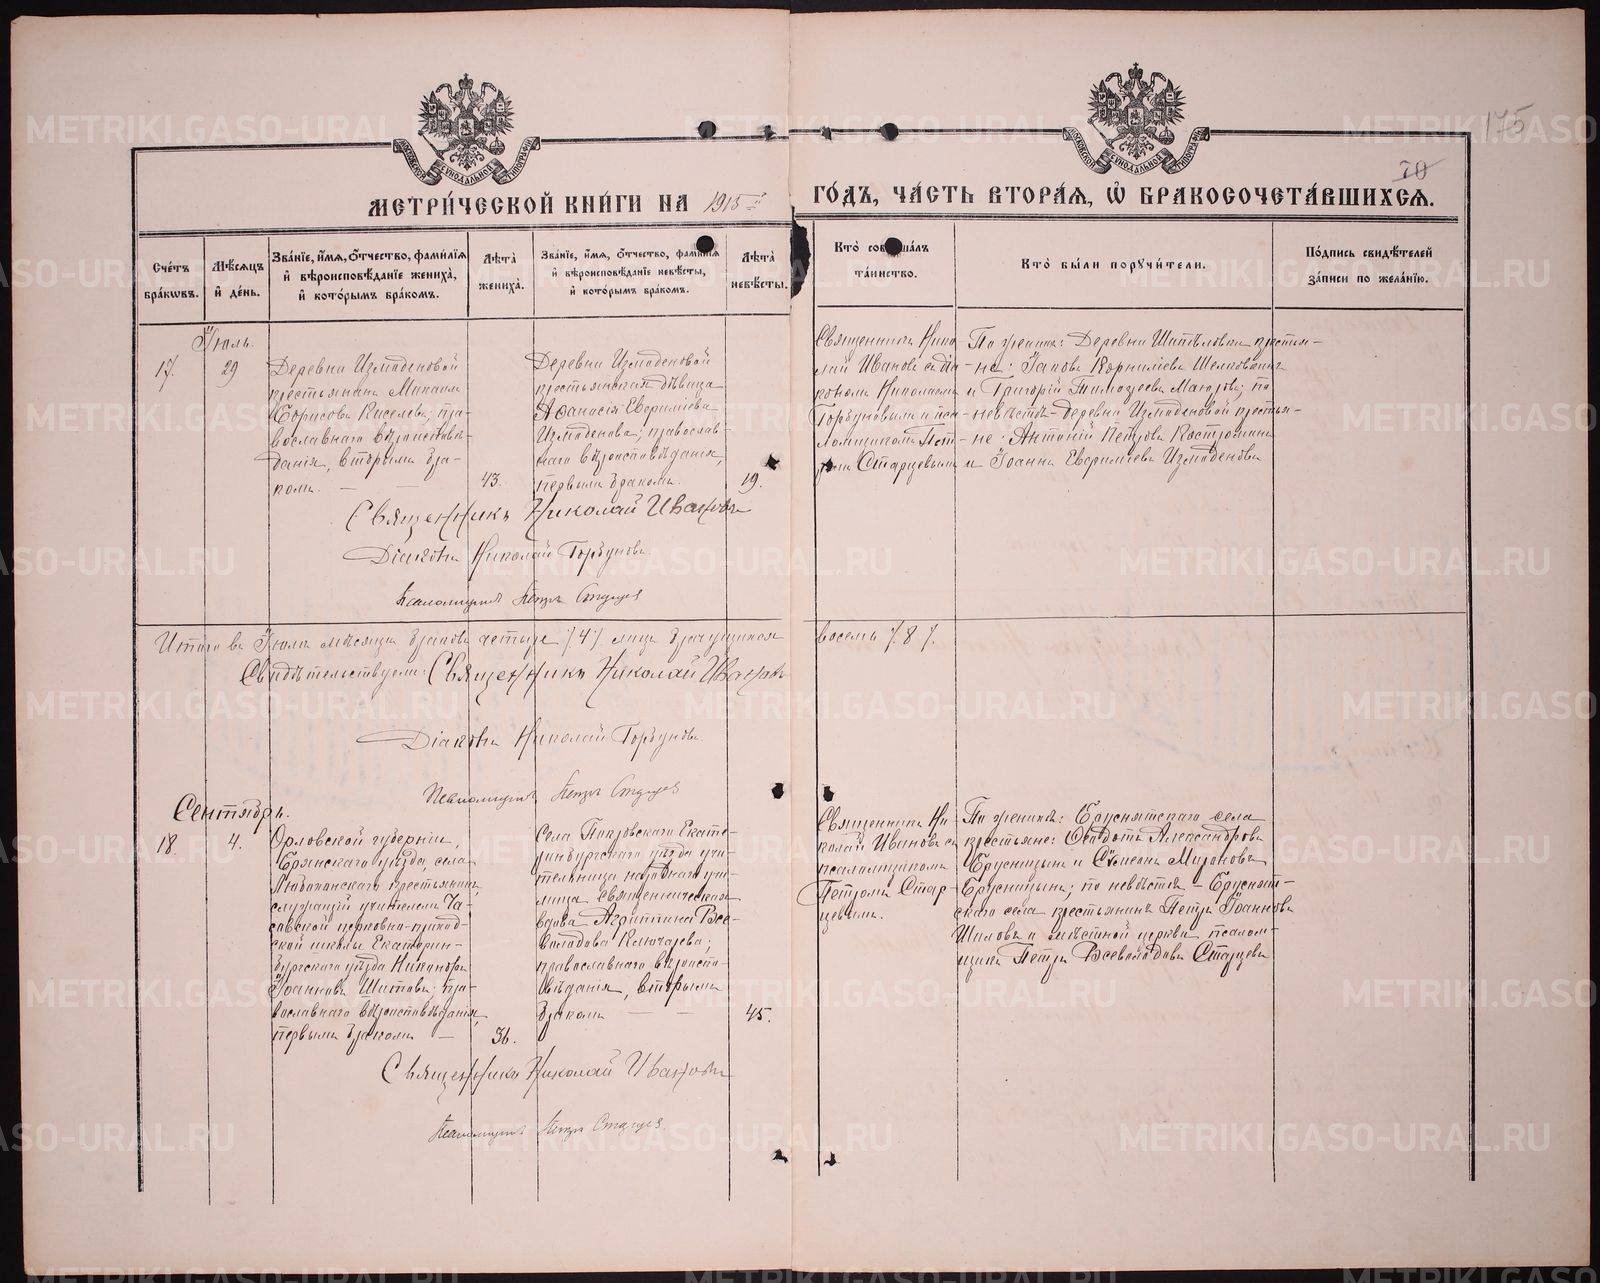 175
70
МОСКОВСКОЙ СѴНОДАЛЬНОЙ ТИПОГРАФІИ
МОСКОВСКОЙ СѴНОДАЛЬНОЙ ТИПОГРАФІИ
МЕТРИ́ЧЕСКОЙ КНИ́ГИ НА 1915й ГО́ДЪ, ЧА́СТЬ ВТОРА́Я, Ѡ҆ БРАКОСОЧЕТА́ВШИХСЯ.
Сче́тъ бра́кѡвъ.
Мѣ́сяцъ и҆ де́нь.
Зва́нїе, и҆́мя, ѻ҆́тчество, фами́лїя и҆ вѣроисповѣ́данїе жениха̀, и҆ кото́рымъ бра́комъ.
Лѣ́та жениха̀.
Зва́нїе, и҆́мя, ѻ҆́тчество, фами́лїя и҆ вѣроисповѣ́данїе невѣ́сты, и҆ кото́рымъ бра́комъ.
Лѣ́та невѣ́сты.
Кто̀ соверша́лъ та́инство.
Кто̀ бы́ли поручи́тели.
По́дпись свидѣ́телей за́писи по жела́нїю.
Іюль.
17.
29
Деревни Измоденовой
крестьянинъ Михаилъ
Борисовъ Киселевъ; пра-
вославнаго вѣроисповѣ-
данія, вторымъ бра-
комъ. — —
43.
Деревни Измоденовой
крестьянская дѣвица
Аѳанасія Евѳиміева
Измоденова; православ-
наго вѣроисповѣданія,
первымъ бракомъ.
19.
Священникъ Нико
лай Ивановъ съ Діа-
кономъ Николаемъ
Горбуновымъ и пса-
ломщикомъ Пет-
ромъ Старцевымъ
По женихѣ: Деревни Шипѣловки крестья-
не: Іаковъ Корниліевъ
и Григорій Тимоѳеевъ Мазуровъ; по
невѣстѣ – деревни Измоденовой крестья-
не: Антоній Петровъ Костроминъ
и Іоаннъ Евѳиміевъ Измоденовъ
Священникъ Николай Ивановъ
Діаконъ Николай Горбуновъ.
Псаломщикъ Петръ Старцев
Итого въ Іюлѣ мѣсяцѣ браковъ четыре /4/ лица брачущихся восемь /8/.
Свидѣтельствуемъ: Священникъ Николай Ивановъ
Діаконъ Николай Горбуновъ.
Псаломщикъ Петръ Старцев
Сентябрь.
18.
4.
Орловской губерніи,
Брянскаго уѣзда, села
Любохонскаго крестьянинъ,
служащій учителемъ Ча-
совской церковно-приход-
ской школы Екатерин-
бургскаго уѣзда Никаноръ
Іоанновъ Шитовъ; пра-
вославнаго вѣроисповѣданія,
первымъ бракомъ —
36.
Села Покровскаго Екате-
ринбургскаго уѣзда учи-
тельница народнаго учи-
лища, священническая
вдова Агриппина Все-
володова Ключарева;
православнаго вѣроиспо-
вѣданія, вторымъ
бракомъ — —
45.
Священникъ Ни-
колай Ивановъ съ
псаломщикомъ
Петромъ Стар-
цевымъ.
По женихѣ: Бруснятскаго села
крестьяне: Ѳеодотъ Александровъ
Брусницынъ и Стефанъ Мироновъ
Брусницынъ; по невѣстѣ – Бруснят-
скаго села крестьянинъ Петръ Іоанновъ
Шиловъ и мѣстной церкви псалом-
щикъ Петръ Всеволодовъ Старцевъ
Священникъ Николай Ивановъ
Псаломщикъ Петръ Старцев
METRIKI.GASO-URAL.RU